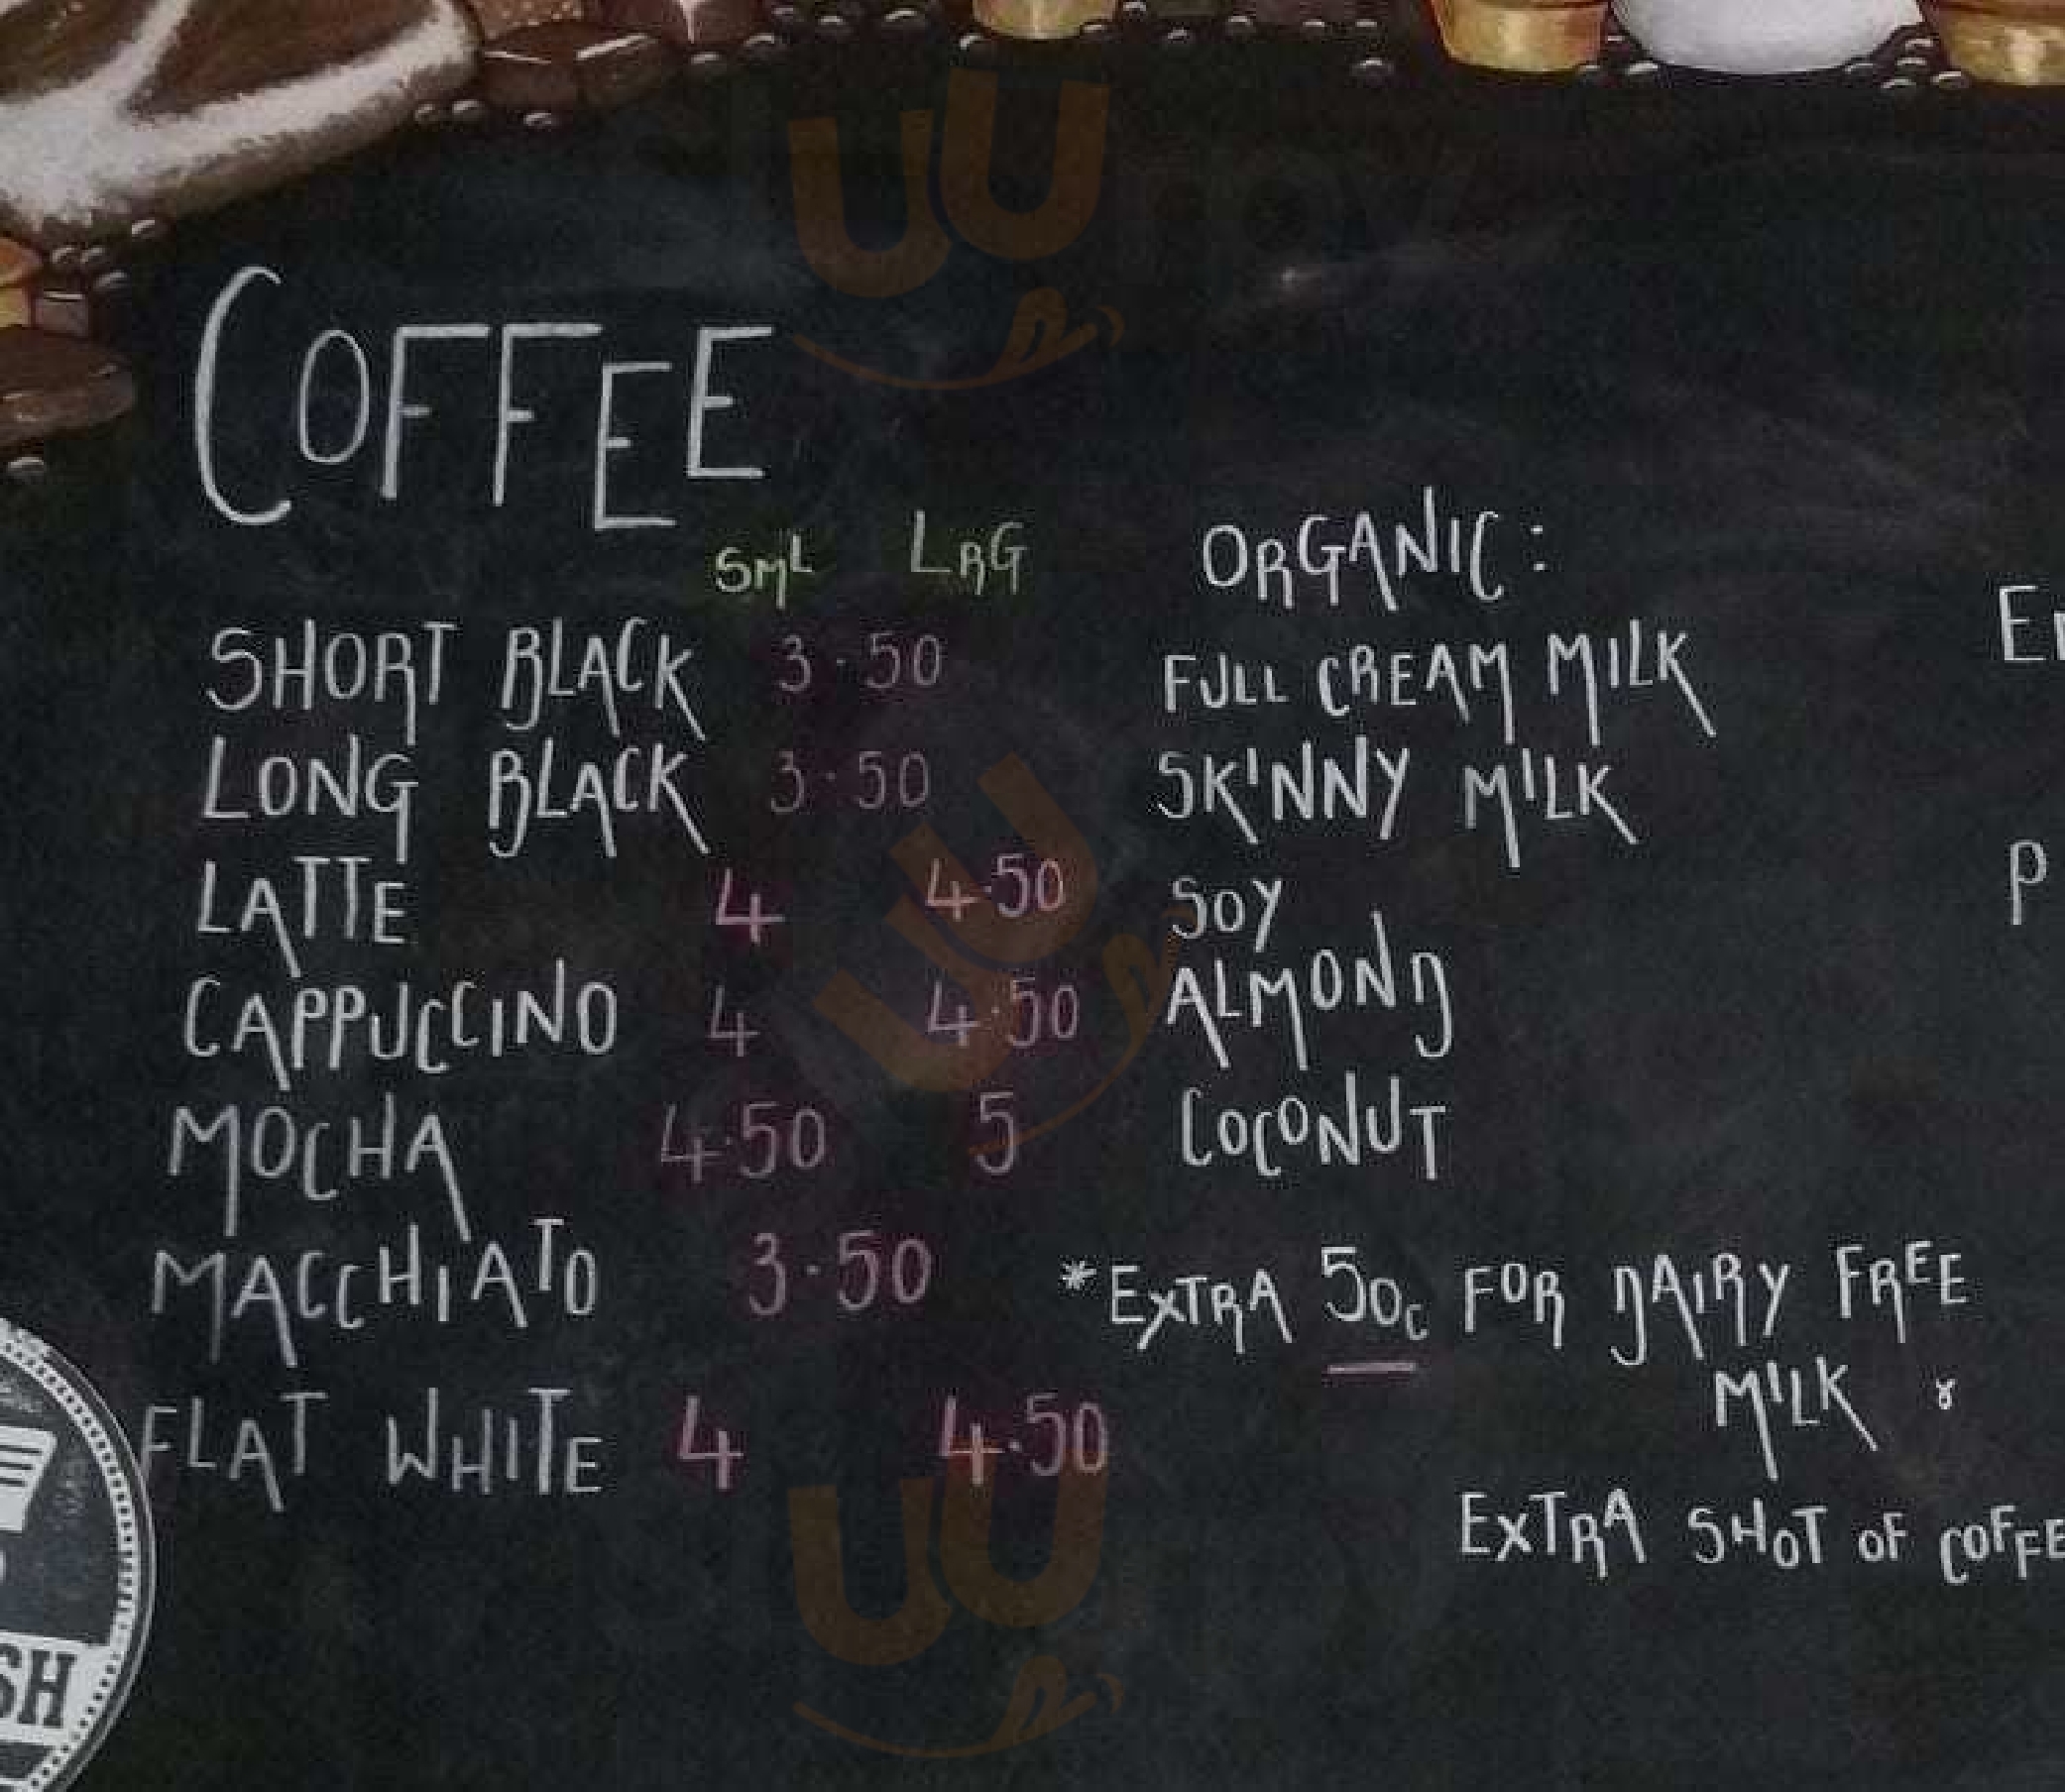 COFFEE
SML LRG
SHORT BLACK 3.50
LONG BLACK 3.50
LATTE 4 4.50
CAPPUCCINO 4 4.50
MOCHA 4.50 5
MACCHIATO 3.50
FLAT WHITE 4 4.50
ORGANIC:
FULL CREAM MILK
SKINNY MILK
SOY
ALMOND
COCONUT
*EXTRA 50c FOR DAIRY FREE
MILK &
EXTRA SHOT OF COFFE
SH
P